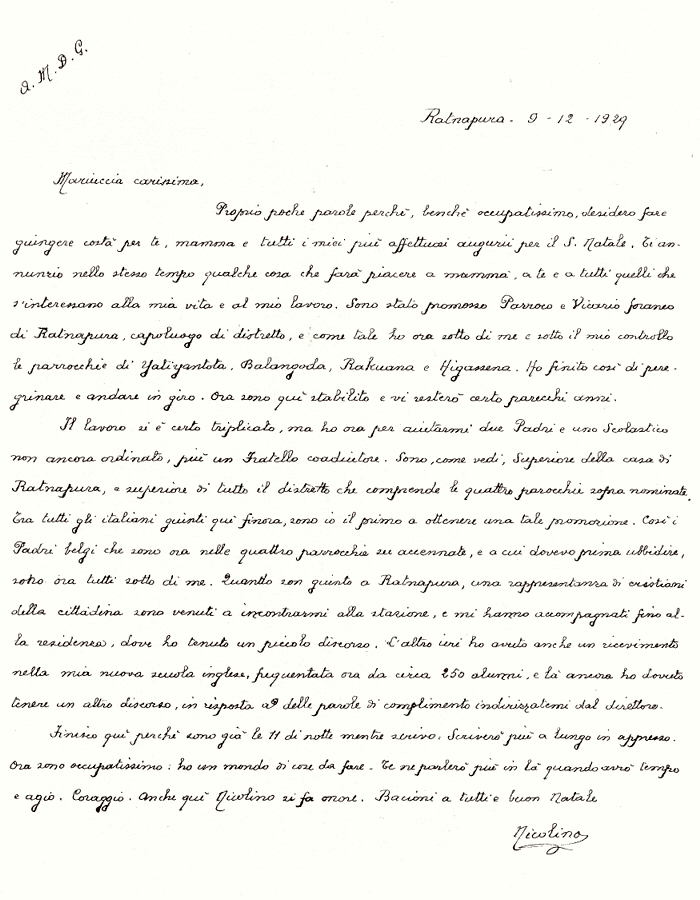 A. M. D. G.
Ratnapura - 9 - 12 - 1929
Mariuccia carissima,
Proprio poche parole perchè, benchè occupatissimo, desidero fare
giungere costà per te, mamma e tutti i miei più affettuosi augurii per il S. Natale. Ti an-
nunzio nello stesso tempo qualche cosa che farà piacere a mamma, a te e a tutti quelli che
s'interessano alla mia vita e al mio lavoro. Sono stato promosso Parroco e Vicario foraneo
di Ratnapura, capoluogo di distretto, e come tale ho ora sotto di me e sotto il mio controllo
le parrocchie di Yatiyantota, Balangoda, Rakuana e Higassena. Ho finito così di pere-
grinare e andare in giro. Ora sono quì stabilito e vi resterò certo parecchi anni.
Il lavoro si è certo triplicato, ma ho ora per aiutarmi due Padri e uno Scolastico
non ancora ordinato, più un Fratello coadiutore. Sono, come vedi, Superiore della casa di
Ratnapura, e superiore di tutto il distretto che comprende le quattro parocchie sopra nominate.
Tra tutti gli italiani giunti quì finora, sono io il primo a ottenere una tale promozione. Così i
Padri belgi che sono ora nelle quattro parrocchie su accennate, e a cui dovevo prima ubbidire,
sono ora tutti sotto di me. Quando son giunto a Ratnapura, una rappresentanza di cristiani
della cittadina sono venuti a incontrarmi alla stazione, e mi hanno accompagnati fino al-
la residenza, dove ho tenuto un piccolo discorso. L'altro ieri ho avuto anche un ricevimento
nella mia nuova scuola inglese, frequentata ora da circa 250 alunni, e là ancora ho dovuto
tenere un altro discorso, in risposta a delle parole di complimento indirizzatemi dal direttore.
Finisco quì perchè sono già le 11 di notte mentre scrivo. Scriverò più a lungo in appresso.
Ora sono occupatissimo: ho un mondo di cose da fare - Te ne parlerò più in là quando avrò tempo
e agio. Coraggio. Anche quì Nicolino si fa onore. Bacioni a tutti e buon Natale
Nicolino